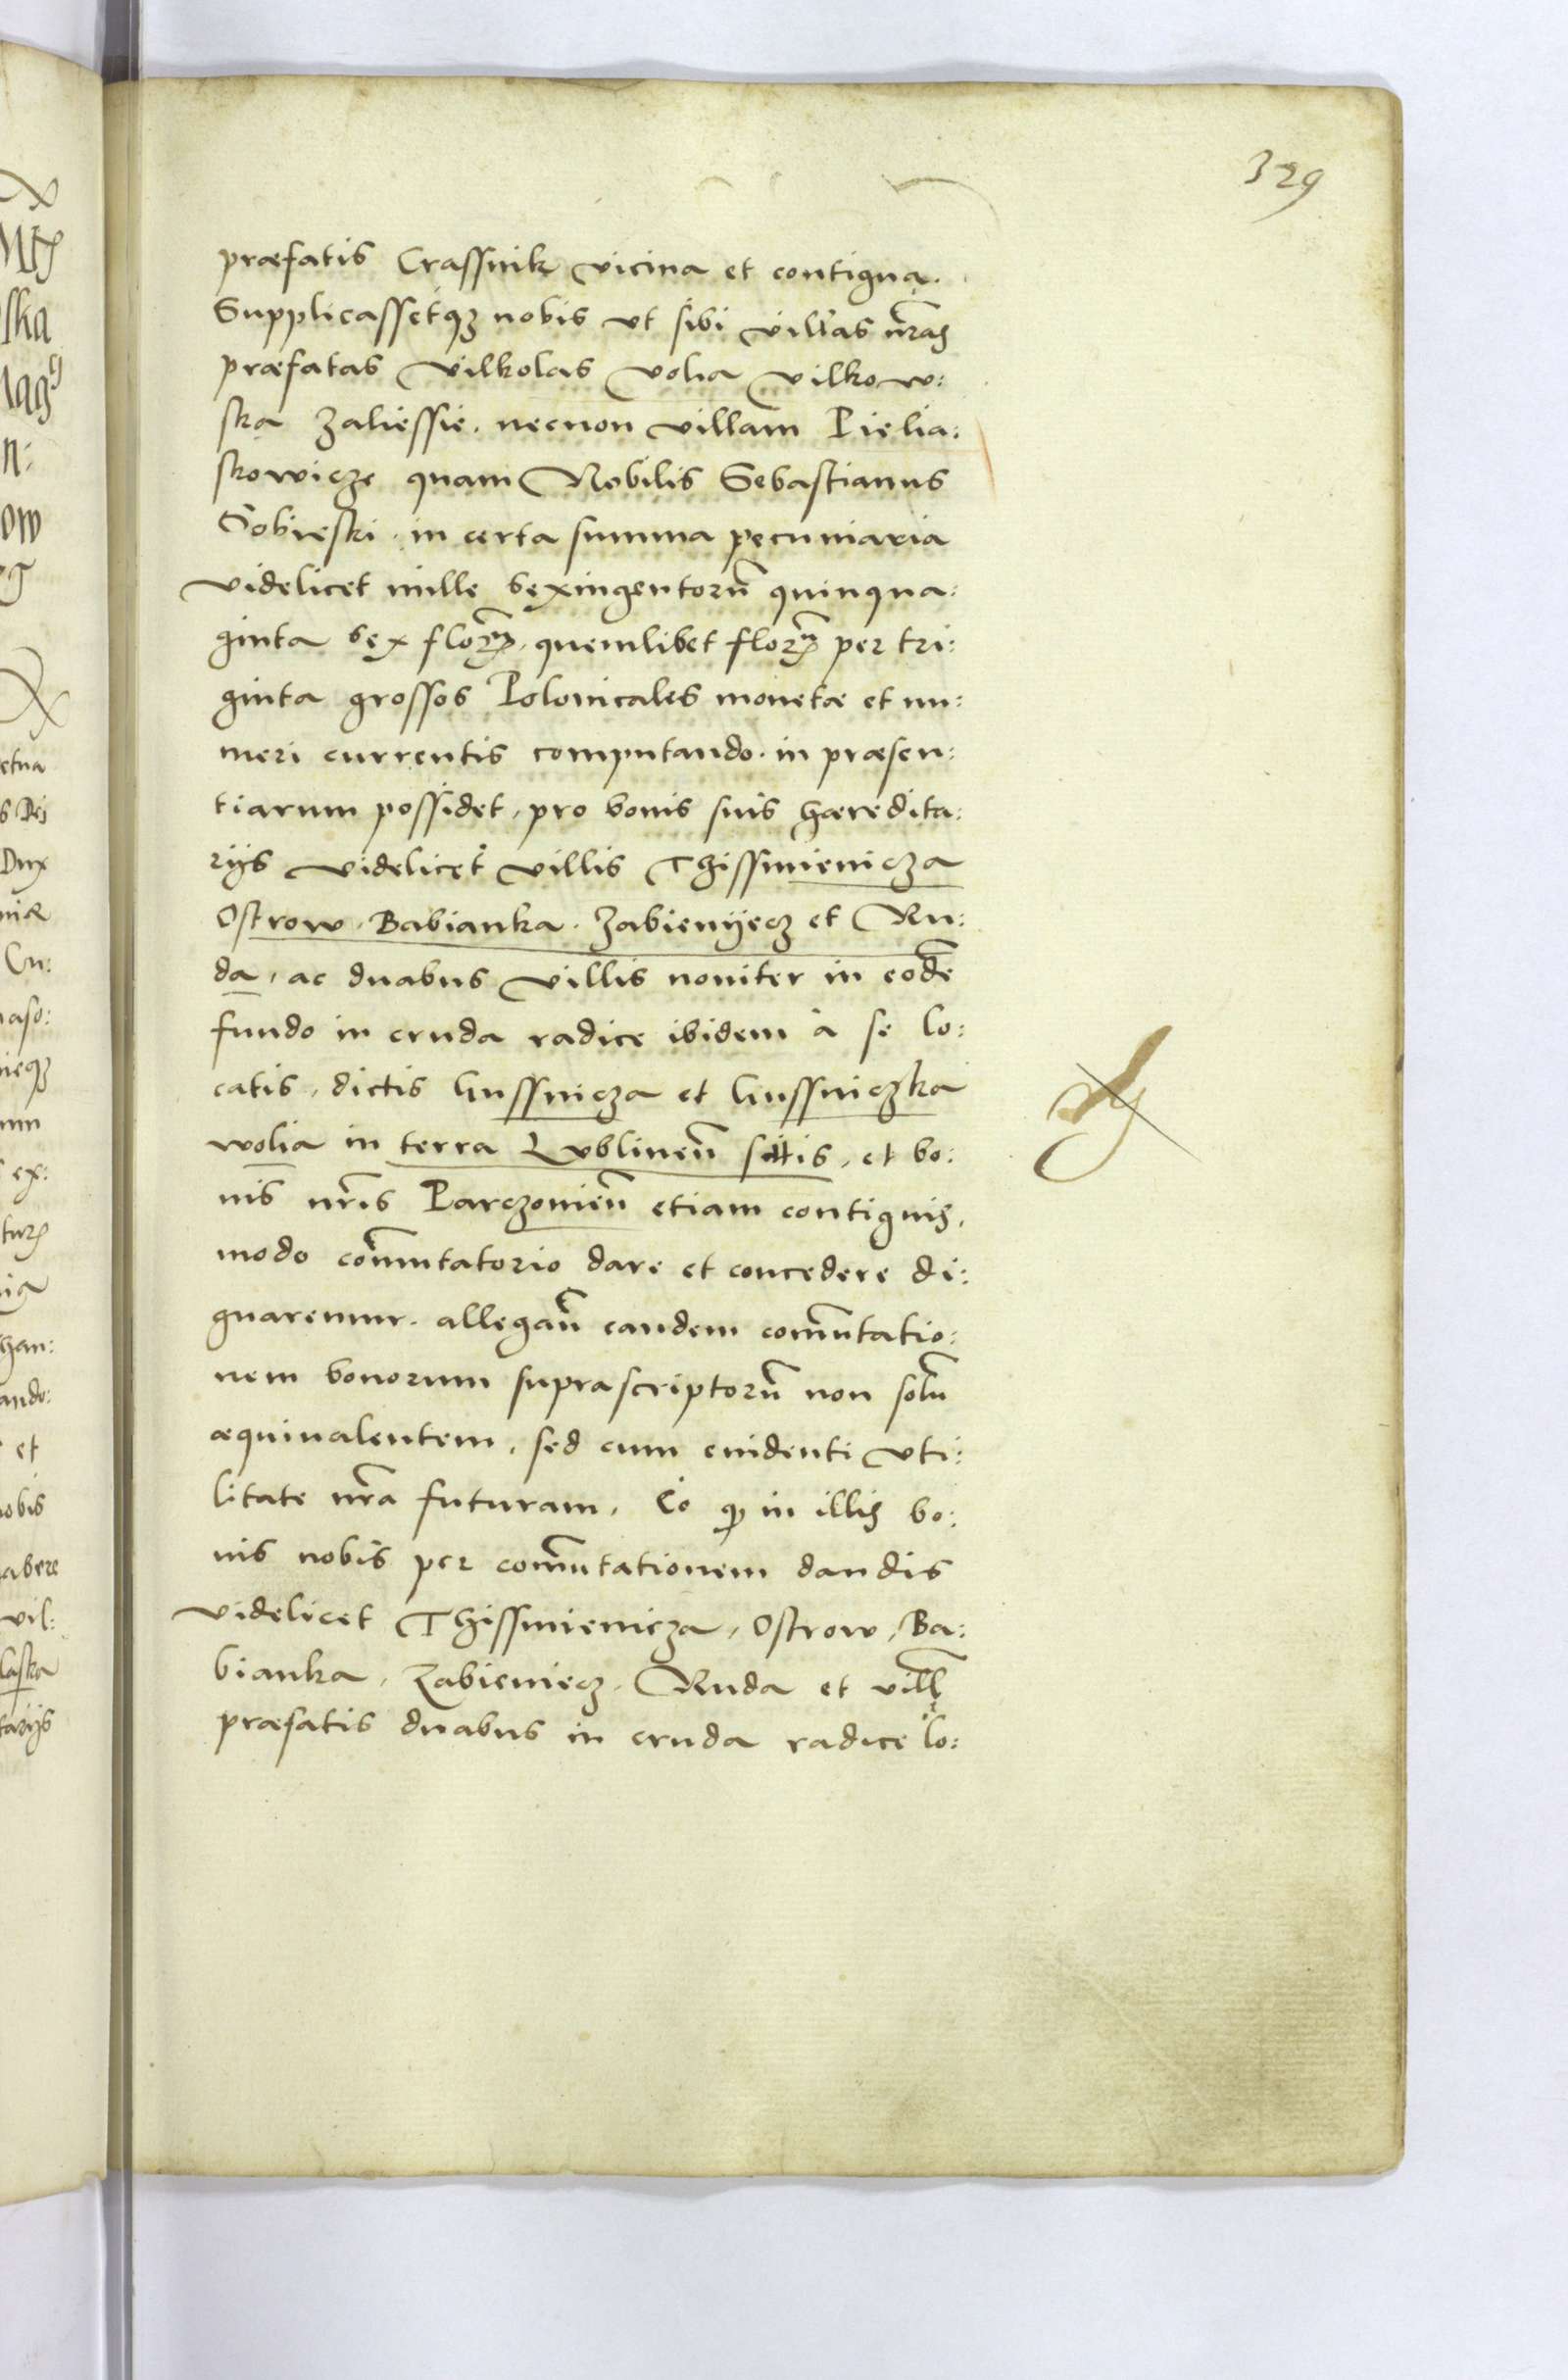 329
præfatis Crassnik vicina et contigua.
Supplicassetqꝫ nobis vt sibi villas nr̃as
præfatas Vilkolas Volia Vilkow:
ska Zaliessie. necnon villam Pielia:
skowicze quam Nobilis Sebastianus
Sobieski. in certa summa pecuniaria
videlicet mille sexingentorũ quinqua:
ginta sex florẽꝝ. quemlibet florẽꝝ per tri:
ginta grossos Polonicales monetæ et nu:
meri currentis computando. in præsen:
tiarum possidet, pro bonis suis hæredita:
rijs videlicet villis Thissmienicza
Ostrow. Babianka. Zabienijecz et Ru:
da, ac duabus villis noviter in eodẽ
fundo in cruda radice ibidem à se lo:
catis, dictis Gussnicza et Gussniczka
wolia in terra Lvblineñ sittis, et bo:
nis nr̃is Parczovieñ etiam contiguis,
modo com̃utatorio dare et concedere di:
gnaremur. allegañ eandem com̃utatio:
nem bonorum suprascriptorũ non solũ
æquivalentem, sed cum euidenti vti:
litate nr̃a futuram. Eò ꝙ in illis bo:
nis nobis per com̃utationem dandis
videlicet Thissmienicza, Ostrow, Ba:
bianka, Zabieniecz, Ruda et vill̃
præfatis duabus in cruda radice lo: